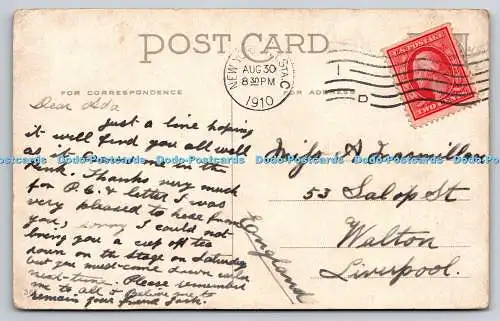 POST CARD
NEW YORK, STA.C
AUG 30
8 30 PM
1910
U.S. POSTAGE
TWO CENTS
FOR CORRESPONDENCE
FOR ADDRESS
Dear Ada
just a line hoping
it well find you all well
as it leaves me in the
Pink. Thanks very much
for P.C. & letter I was
very pleased to hear from
you, sorry I could not
bring you a cup off tea
down on the stage on Saturday
but you must come down
next time. Please remember
me to all & Believe me to
remain your friend Jack.
Miss A
53 Salop St
Walton
Liverpool.
Eangland
Dodo-Postcards Dodo-Postcards Dodo-Postcards Dodo-Postcards Dodo-Postcards